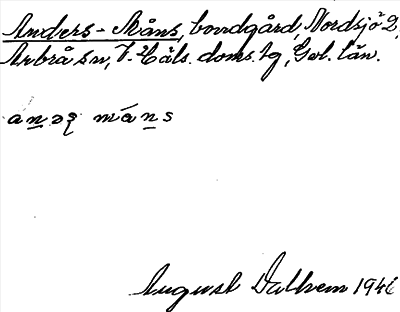 Anders-Måns, bondgård, Nordsjö 2,
Arbrå sn, V. Häls. doms.tg, Gvl. län.
anəʂ måns
August Dallrem 1946